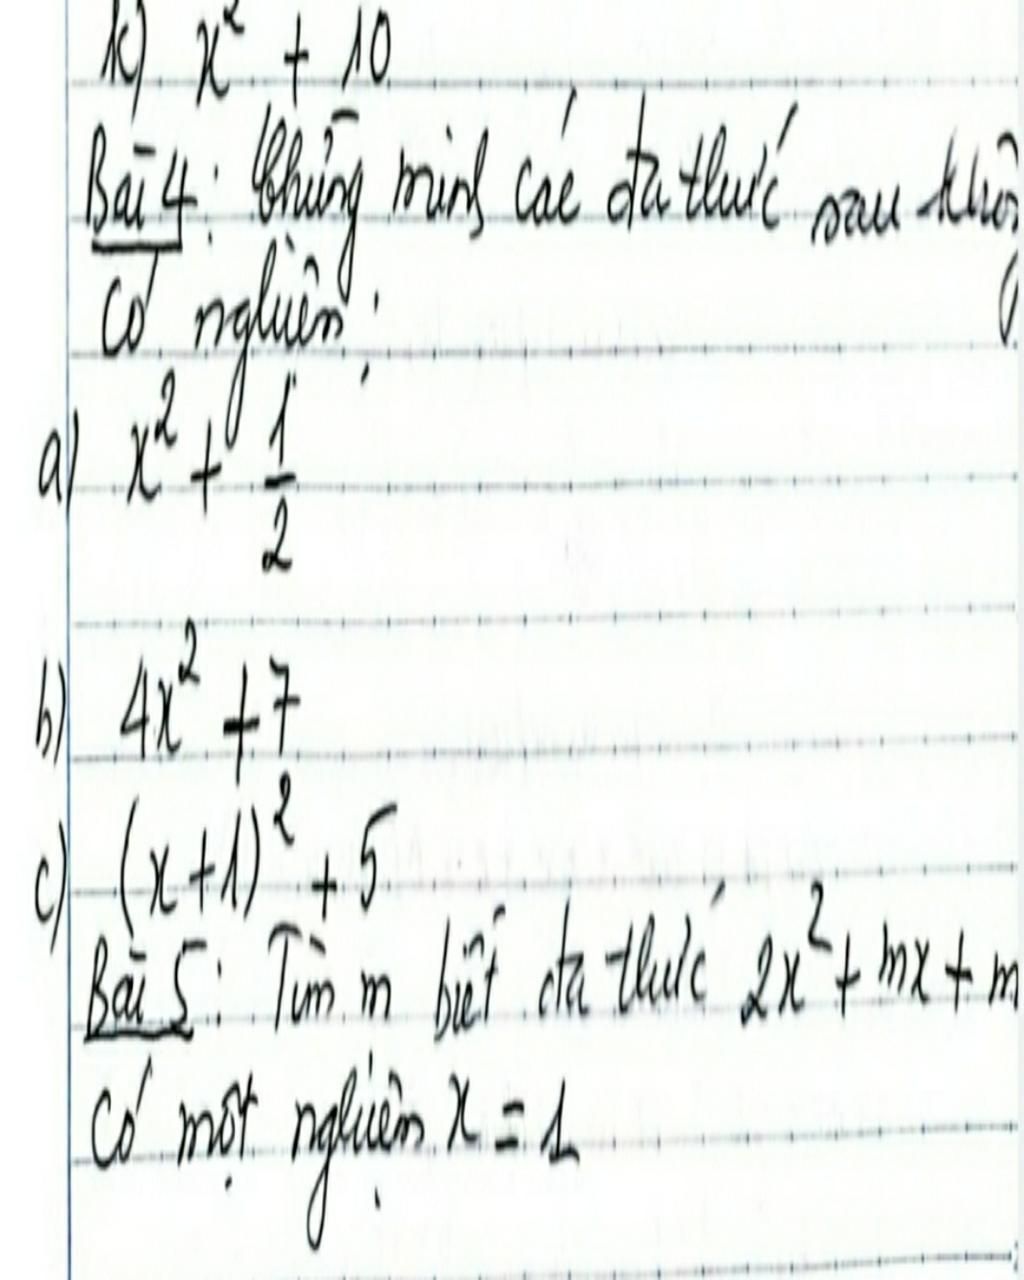 k) x² + 10
Bài 4: Chứng minh các đa thức sau không
có nghiệm:
a) x² + 1/2
b) 4x² + 7
c) (x+1)² + 5
Bài 5: Tìm m biết đa thức 2x² + mx + m
có một nghiệm x = 1